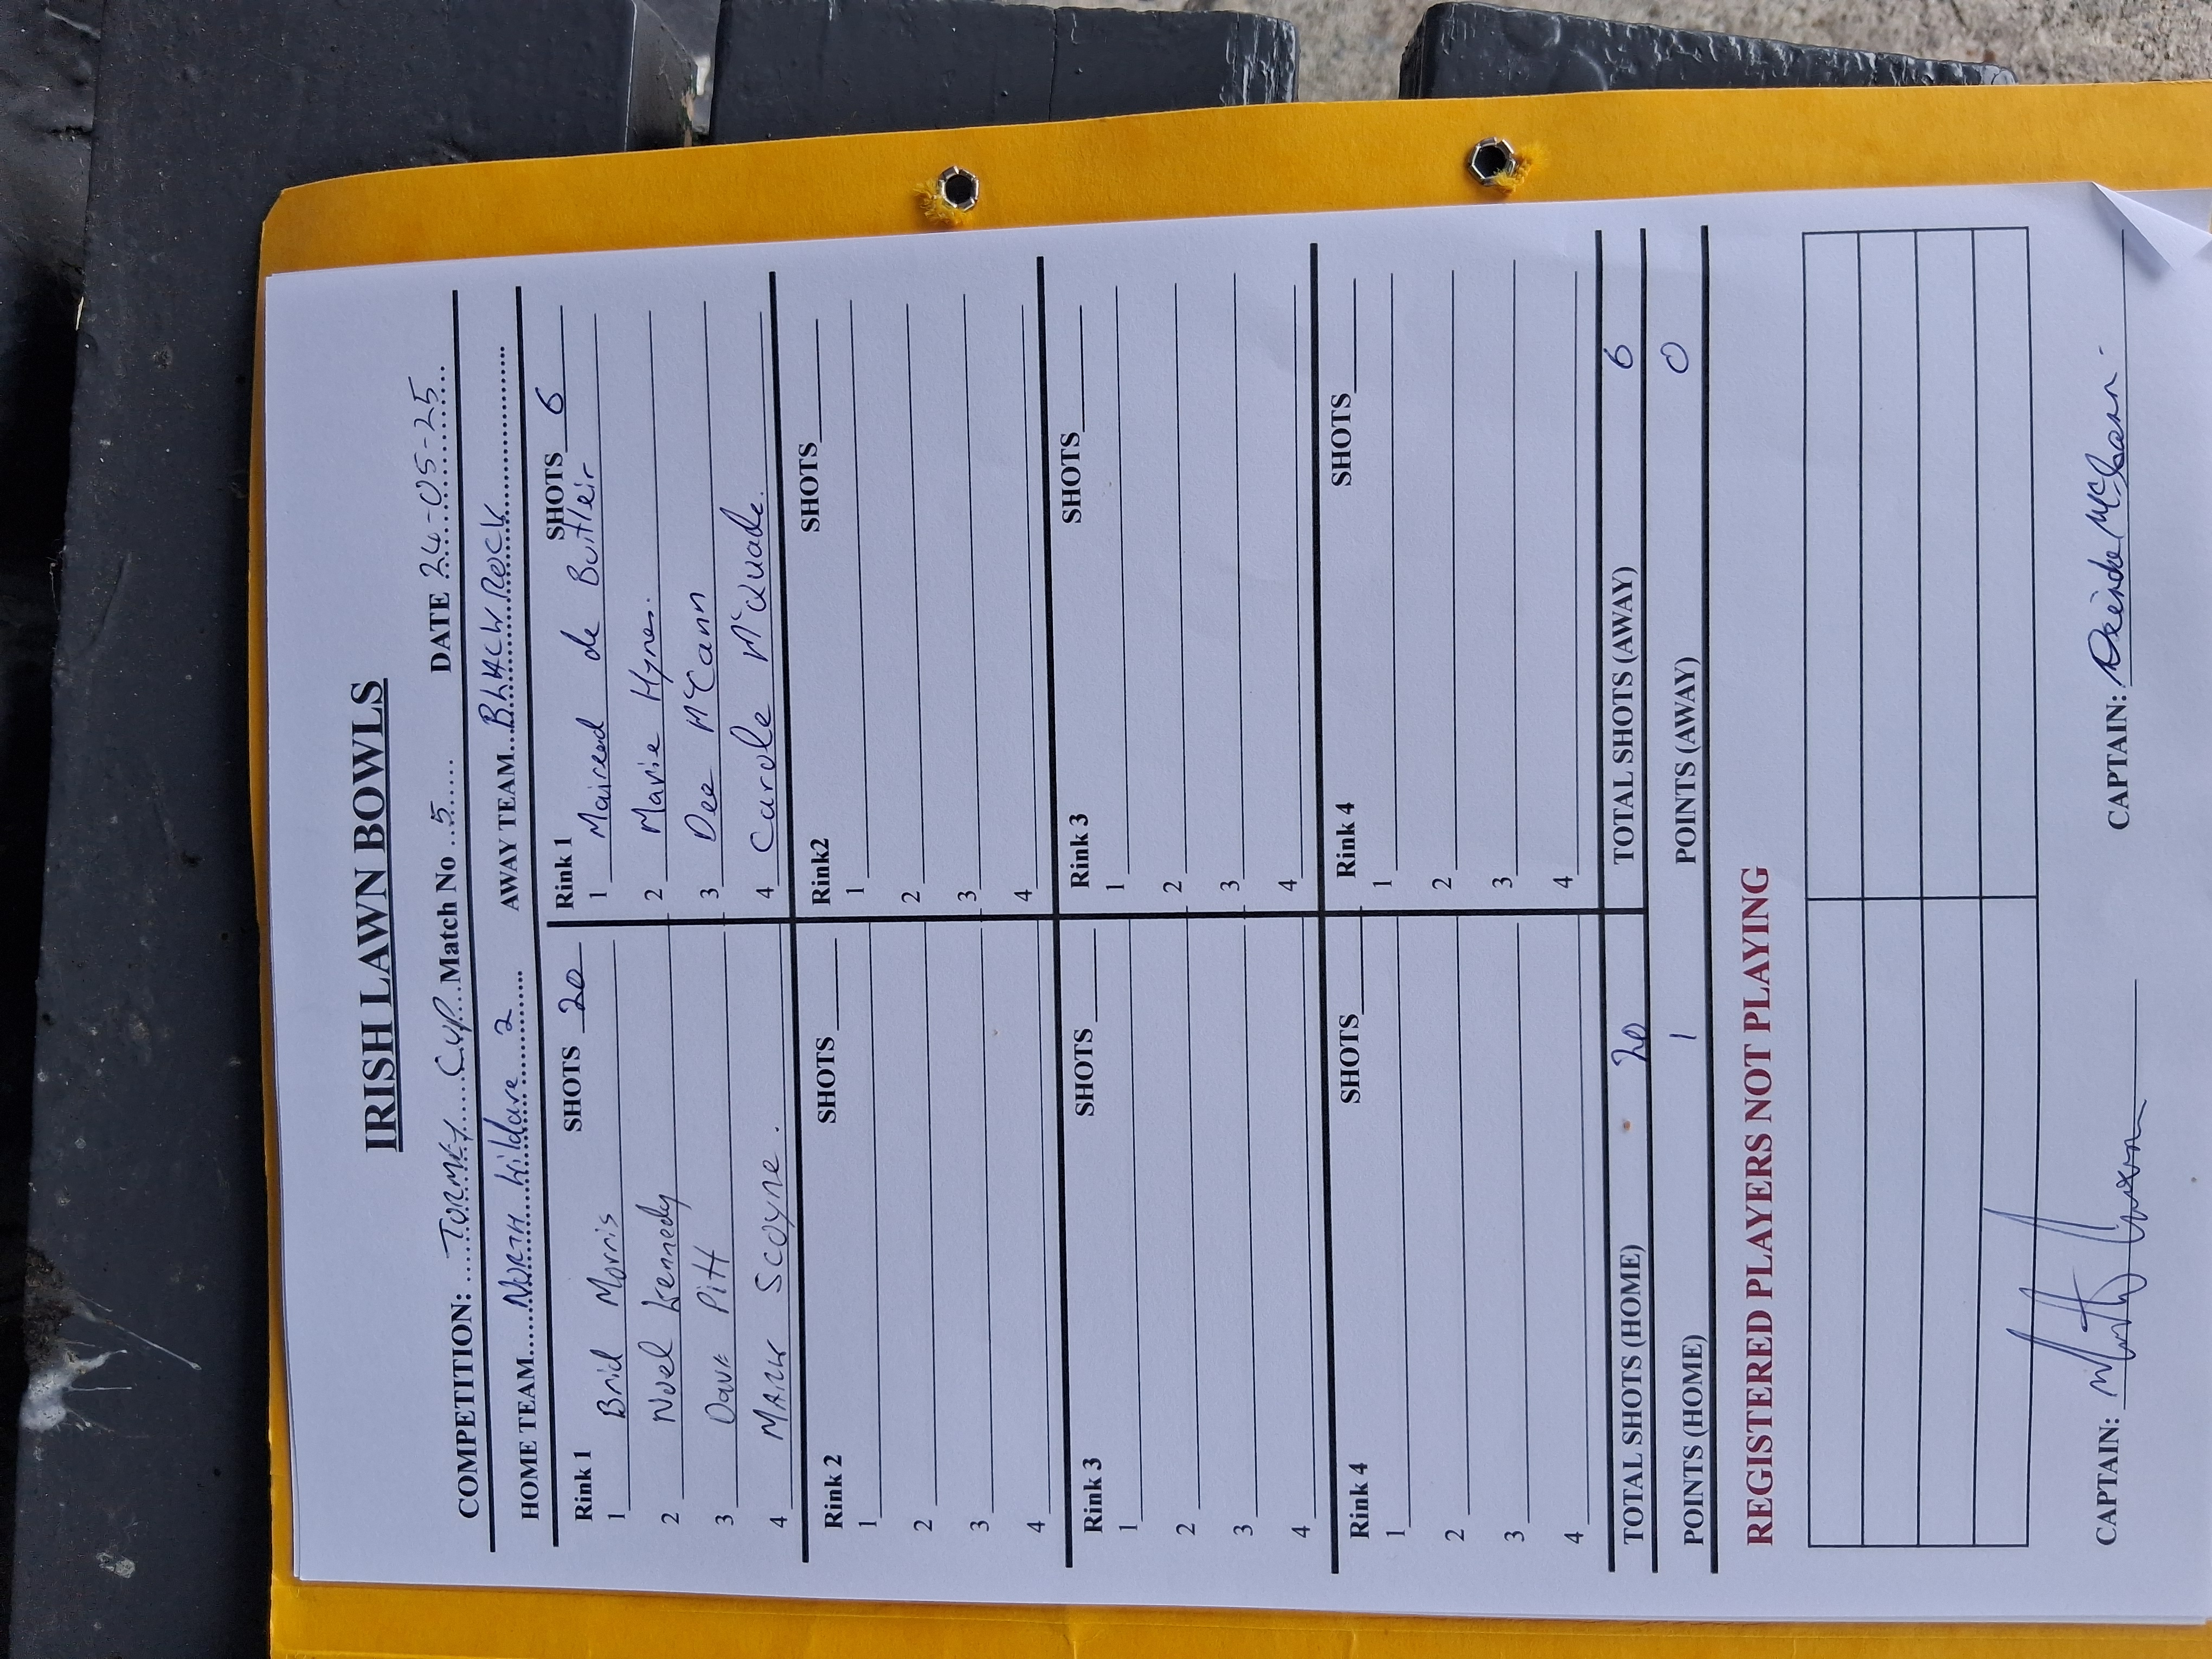 IRISH LAWN BOWLS
COMPETITION: ....TORMEY.....CUP...Match No ..5...... DATE 24-05-25...
HOME TEAM.....NORTH Kildare 2....... AWAY TEAM...BLACKROCK................
Rink 1 SHOTS 20
1 Brid Morris
2 Noel Kennedy
3 Dave Pitt
4 MARK SCOYNE.
Rink 1 SHOTS 6
1 Mairead de Butleir
2 Marie Hynes.
3 Dee McCann
4 Carole McQuade.
Rink 2 SHOTS
1
2
3
4
Rink2 SHOTS
1
2
3
4
Rink 3 SHOTS
1
2
3
4
Rink 3 SHOTS
1
2
3
4
Rink 4 SHOTS
1
2
3
4
Rink 4 SHOTS
1
2
3
4
TOTAL SHOTS (HOME) 20 TOTAL SHOTS (AWAY) 6
POINTS (HOME) 1 POINTS (AWAY) 0
REGISTERED PLAYERS NOT PLAYING
CAPTAIN: CAPTAIN: Deirdre McCann.